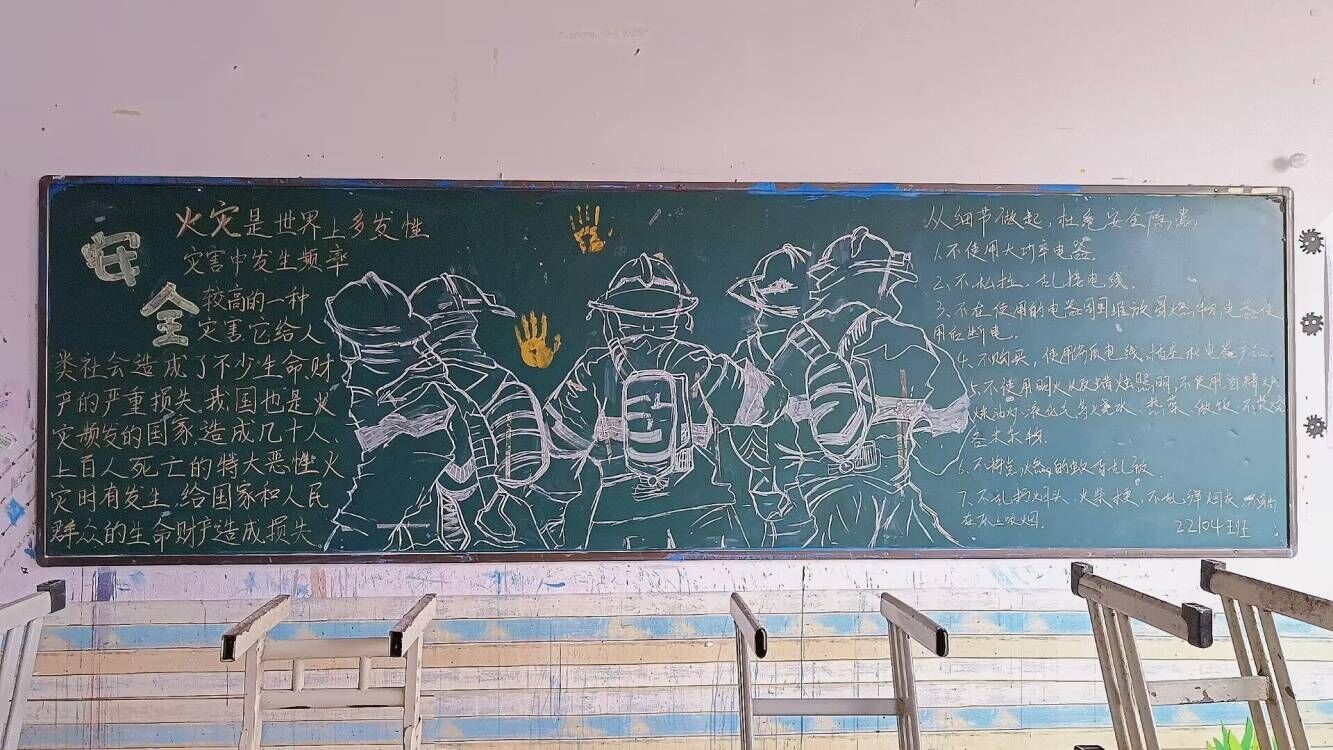 安全
火灾是世界上多发性
灾害中发生频率
较高的一种
灾害它给人
类社会造成了不少生命财
产的严重损失.我国也是火
灾频发的国家.造成几十人、
上百人死亡的特大恶性火
灾时有发生.给国家和人民
群众的生命财产造成损失.
从细节做起,杜绝安全隐患
1.不使用大功率电器.
2.不私拉,乱接电线.
3.不在使用的电器周围堆放易燃物,电器使
用后断电.
4.不购买,使用劣质电线,插座和电器产品.
5.不使用明火以及蜡烛照明,不使用酒精炉
热菜、做饭
6.不将点燃的蚊香乱放
7.不乱扔烟头、火柴梗,不乱弹烟灰
在床上吸烟.
22104班